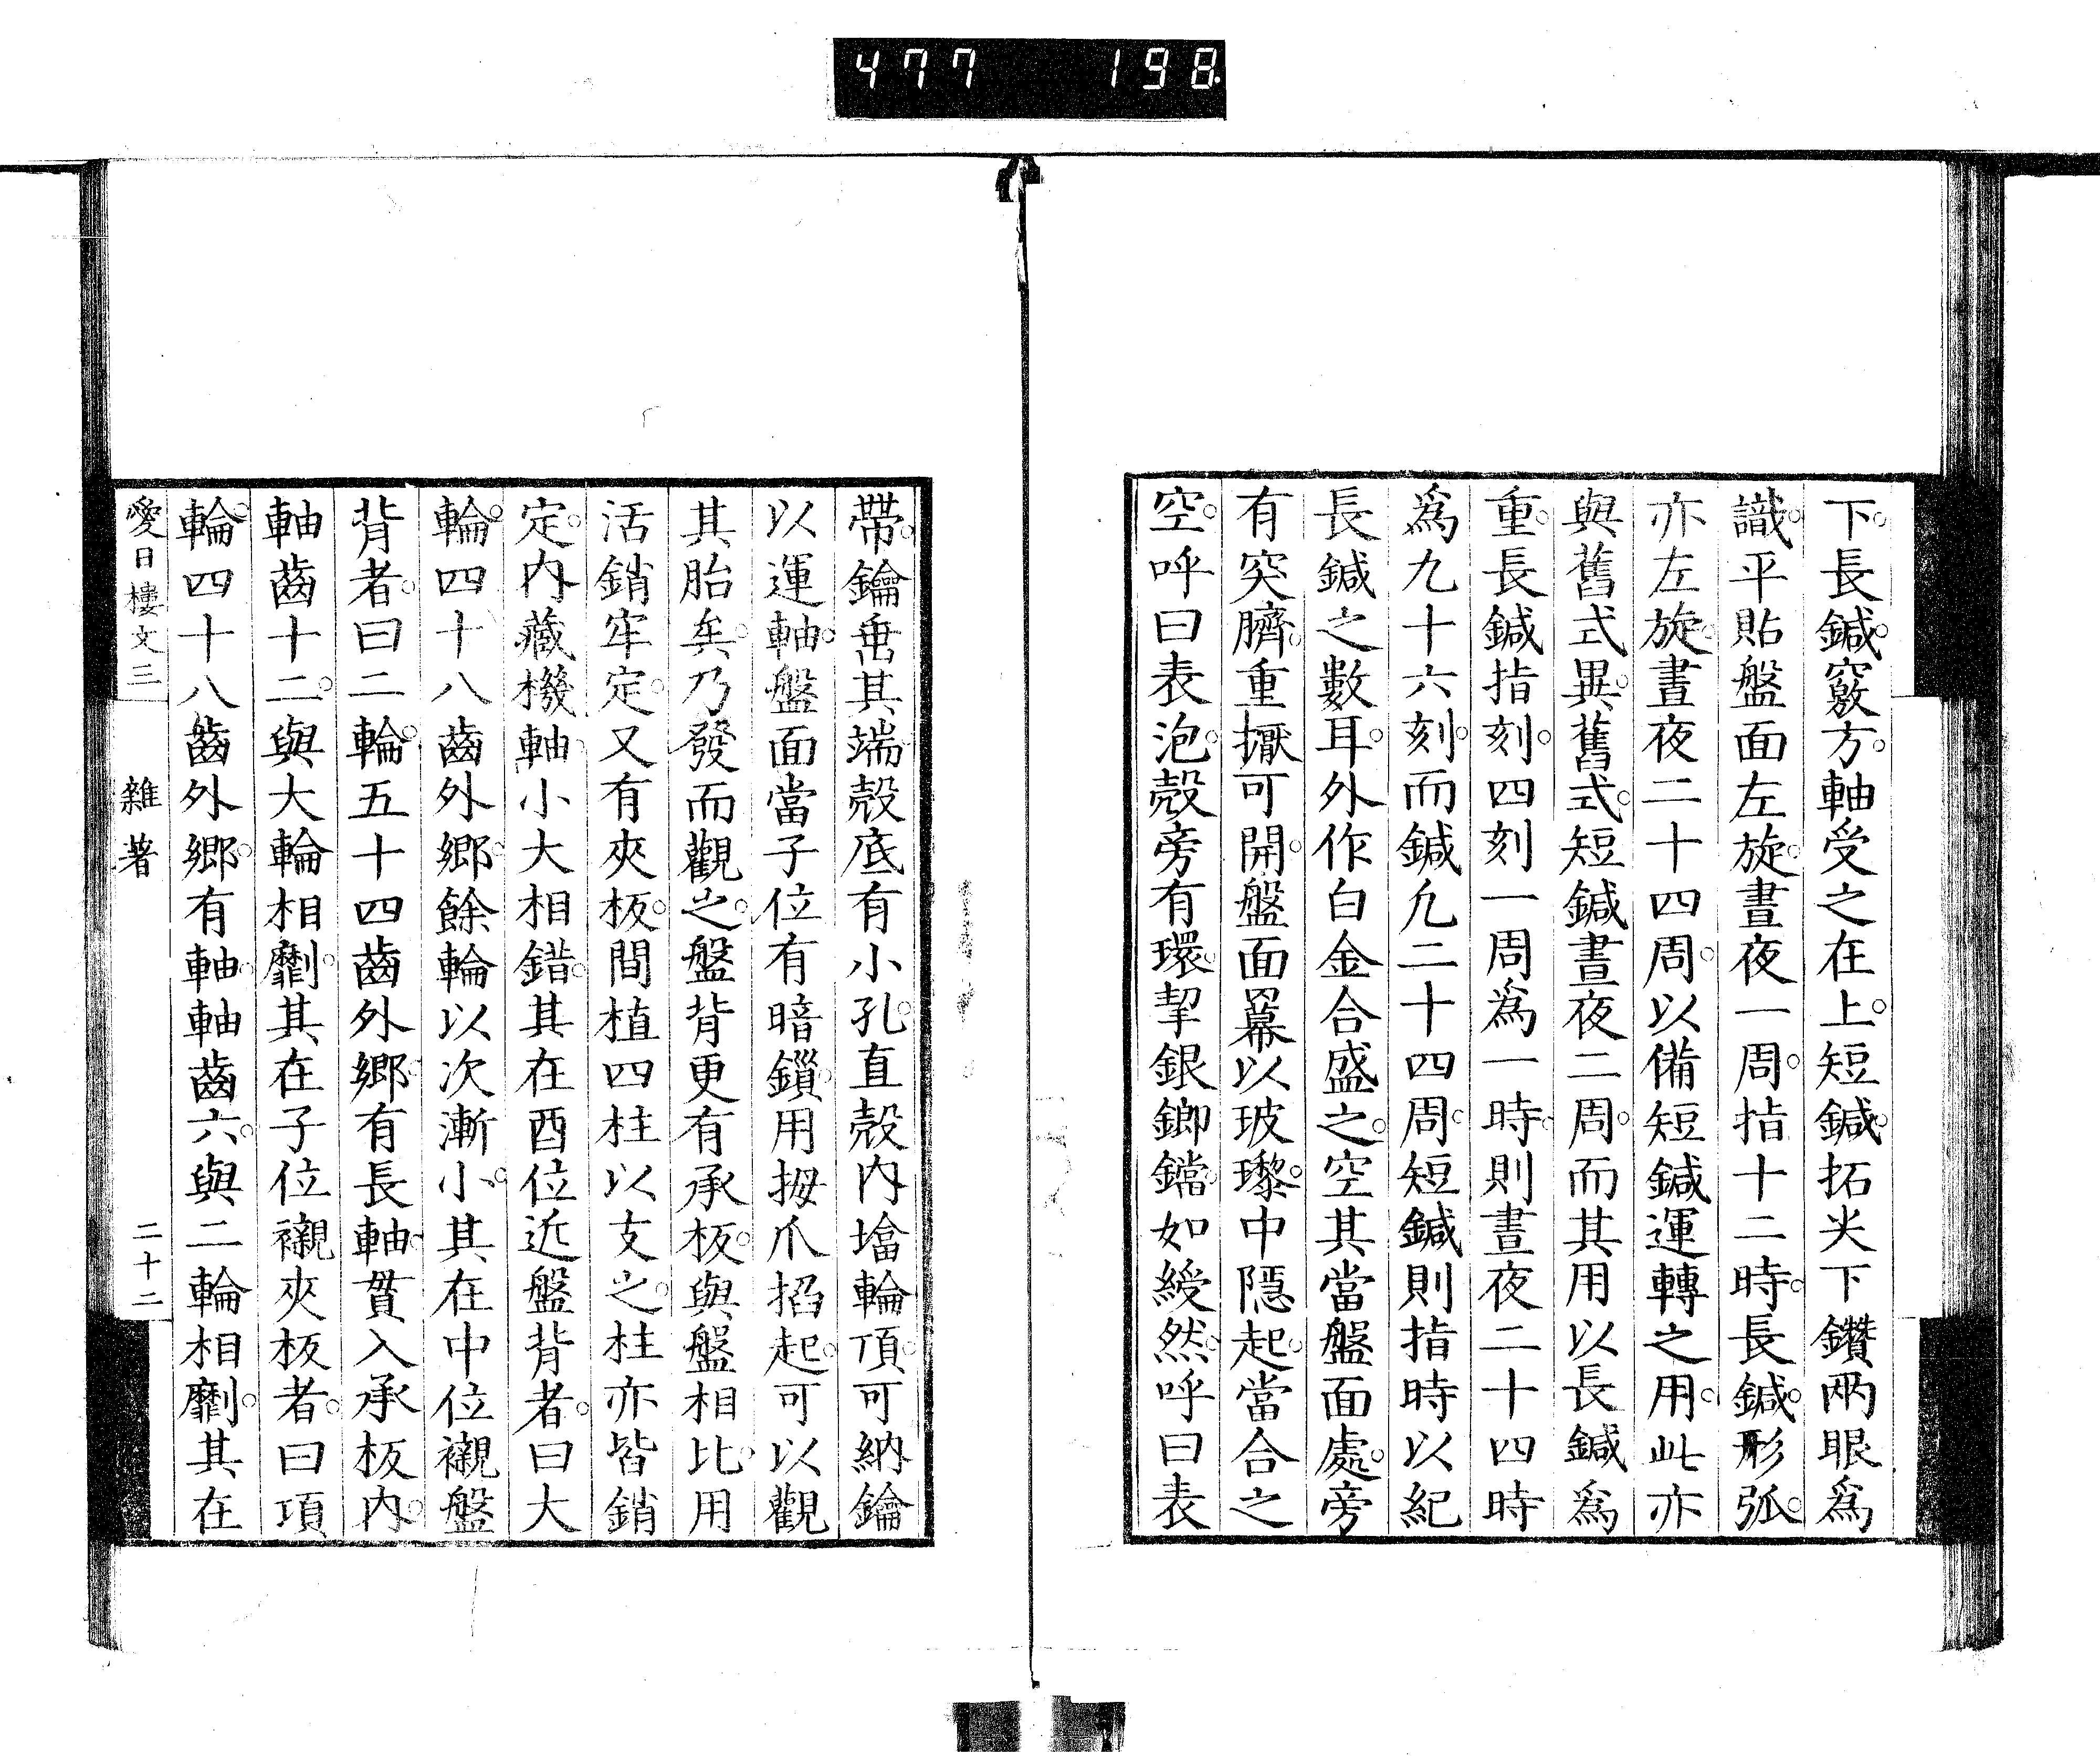 477 198
下。長鍼。竅方。軸受之在上。短鍼。拓尖下鑽兩眼爲
識。平貼盤面左旋。晝夜一周。指十二時。長鍼。形弧。
亦左旋。晝夜二十四周。以備短鍼運轉之用。此亦
與舊式異。舊式。短鍼晝夜二周。而其用以長鍼爲
重。長鍼指刻。四刻一周爲一時。則晝夜二十四時
爲九十六刻。而鍼凢二十四周。短鍼則指時以紀
長鍼之數耳。外作白金合盛之。空其當盤面處。旁
有突臍。重擫可開。盤面羃以玻瓈。中隱起。當合之
空。呼曰表泡。殼旁有環。挈銀鎯鐺。如綬然。呼曰表
帶。鑰垂其端殼底有小孔。直殼内墖輪頂。可納鑰
以運軸。盤面當子位有暗鎻。用拇爪搯起。可以觀
其胎矣。乃發而觀之。盤背更有承板。與盤相比。用
活銷牢定。又有夾板。間植四柱以支之。柱亦皆銷
定。内藏機軸。小大相錯。其在酉位近盤背者。曰大
輪。四十八齒外郷。餘輪以次漸小。其在中位襯盤
背者。曰二輪。五十四齒外郷。有長軸。貫入承板内。
軸齒十二。與大輪相劘。其在子位襯夾板者。曰項
輪。四十八齒外郷。有軸。軸齒六。與二輪相劘。其在
愛日樓文三 雜著 二十二